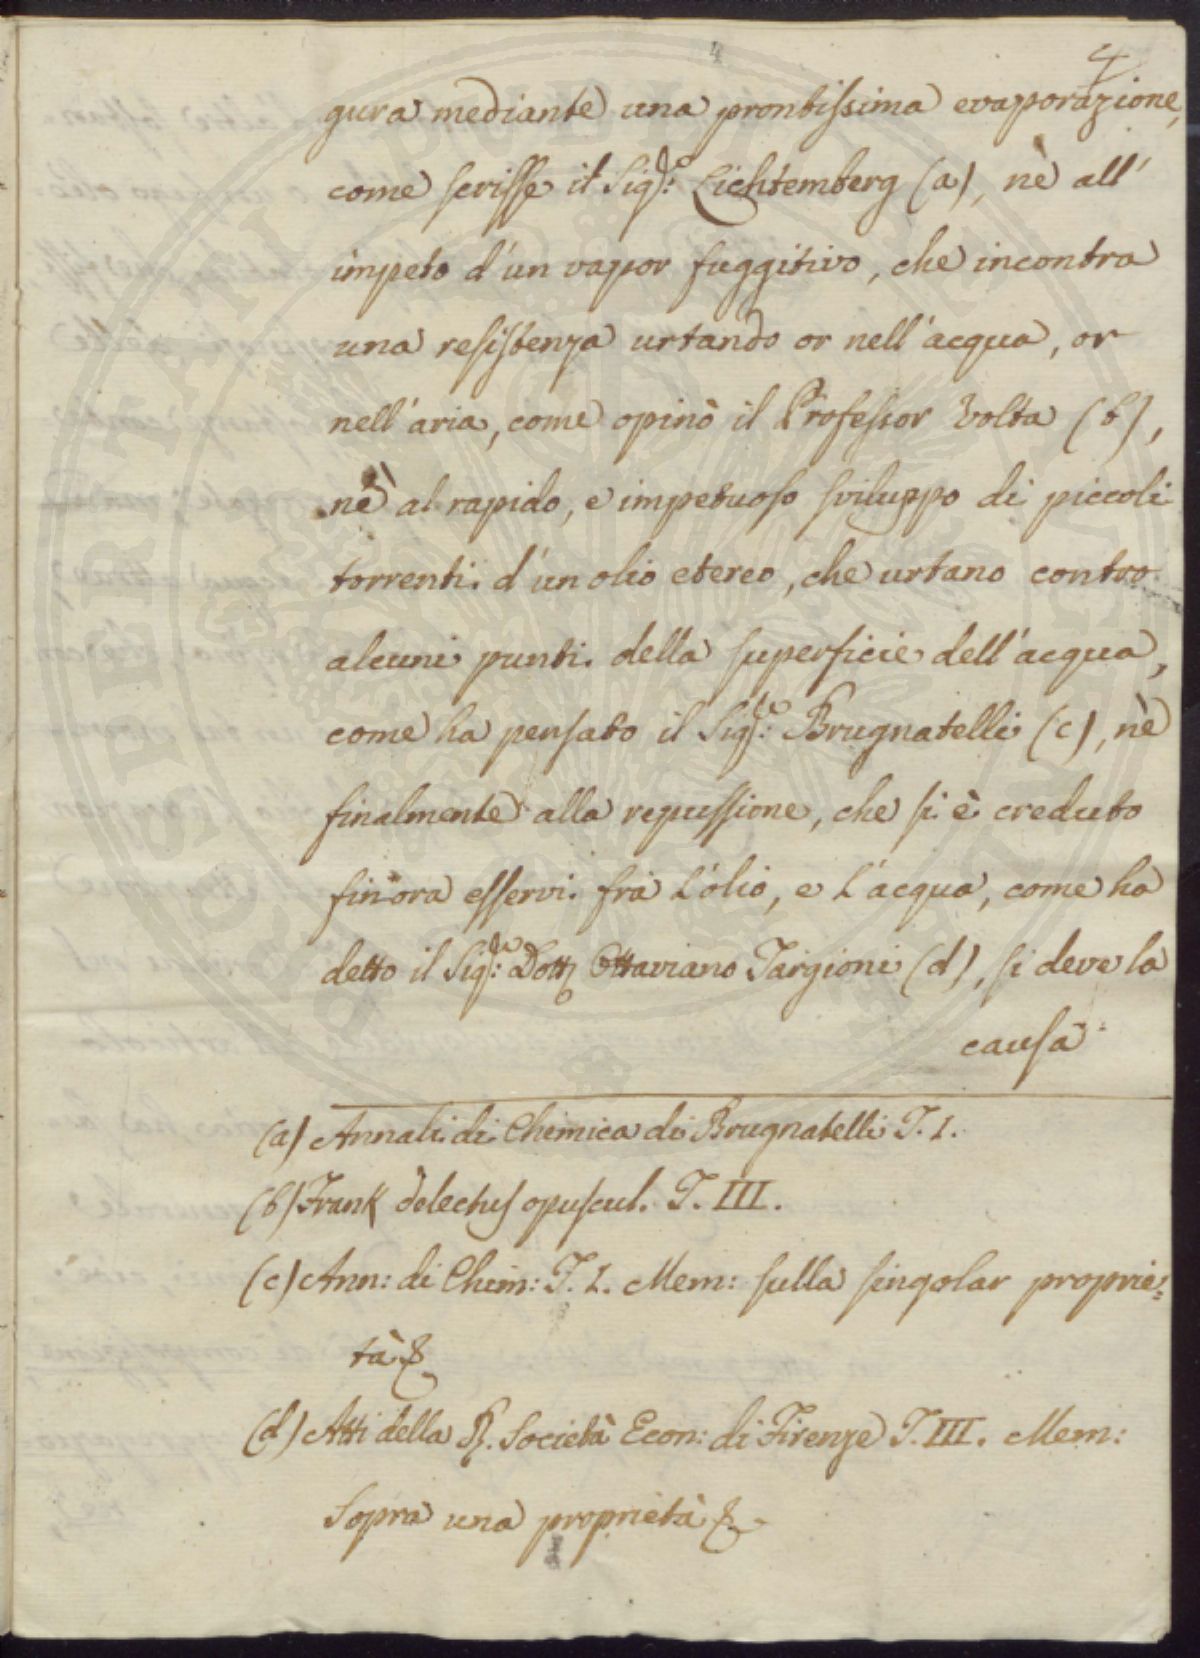 4
4
gura mediante una prontissima evaporazione,
come scrisse il Sigʳᵉ: Lichtemberg (a), nè all'
impeto d'un vapor fuggitivo, che incontra
una resistenza urtando or nell'acqua, or
nell'aria, come opinò il Professor Volta (b),
nè al rapido, e impetuoso sviluppo di piccoli
torrenti d'un olio etereo, che urtano contro
alcuni punti della superficie dell'acqua,
come ha pensato il Sigʳᵉ: Brugnatelli (c), nè
finalmente alla repussione, che si è creduto
finora esservi frà l'olio, e l'acqua, come ha
detto il Sigʳᵉ: Dottʳ Ottaviano Targioni (d), si deve la
causa
(a) Annali di Chimica di Brugnatelli T. I.
(b) Frank delectus opuscul. T. III.
(c) Ann: di Chim: T. I. Mem: sulla singolar proprie=
tà &
(d) Atti della R. Società Econ: di Firenze T. III. Mem:
Sopra una proprietà &